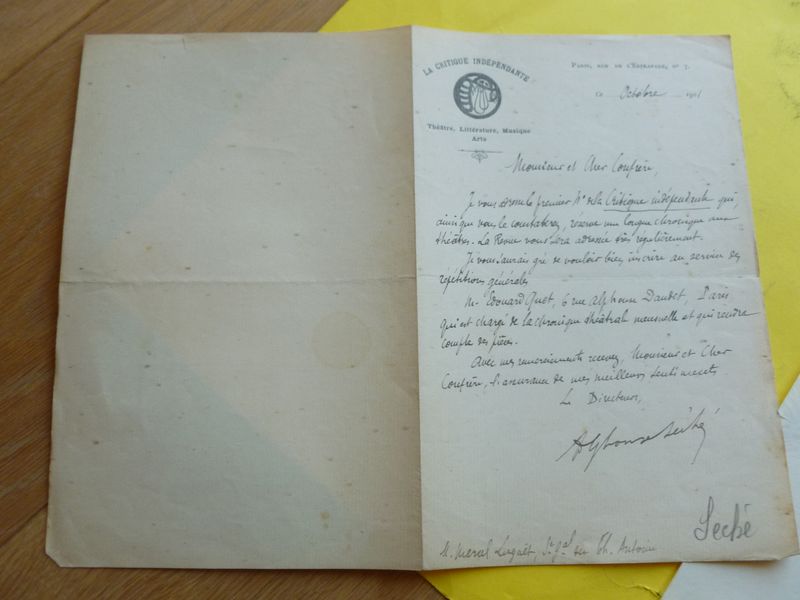 LA CRITIQUE INDÉPENDANTE
Théâtre, Littérature, Musique
Arts
PARIS, RUE DE L'ESPÉRANCE, N° 7.
Ce Octobre 1901
Monsieur et Cher Confrère,
Je vous adresse le premier N° de la Critique indépendante qui,
ainsi que vous le constaterez, réserve une longue chronique aux
théâtres. La Revue vous sera adressée très régulièrement.
Je vous saurais gré de vouloir bien inscrire au service des
répétitions générales
M. Edouard Quet, 6 rue Alphonse Daudet, Paris
qui est chargé de la chronique théâtrale mensuelle et qui rendra
compte des pièces.
Avec mes remerciements recevez, Monsieur et Cher
Confrère, l'assurance de mes meilleurs sentiments
Le Directeur,
Alphonse Séché
Seché
M. Marcel Luguet, Sre Gal du Th. Antoine